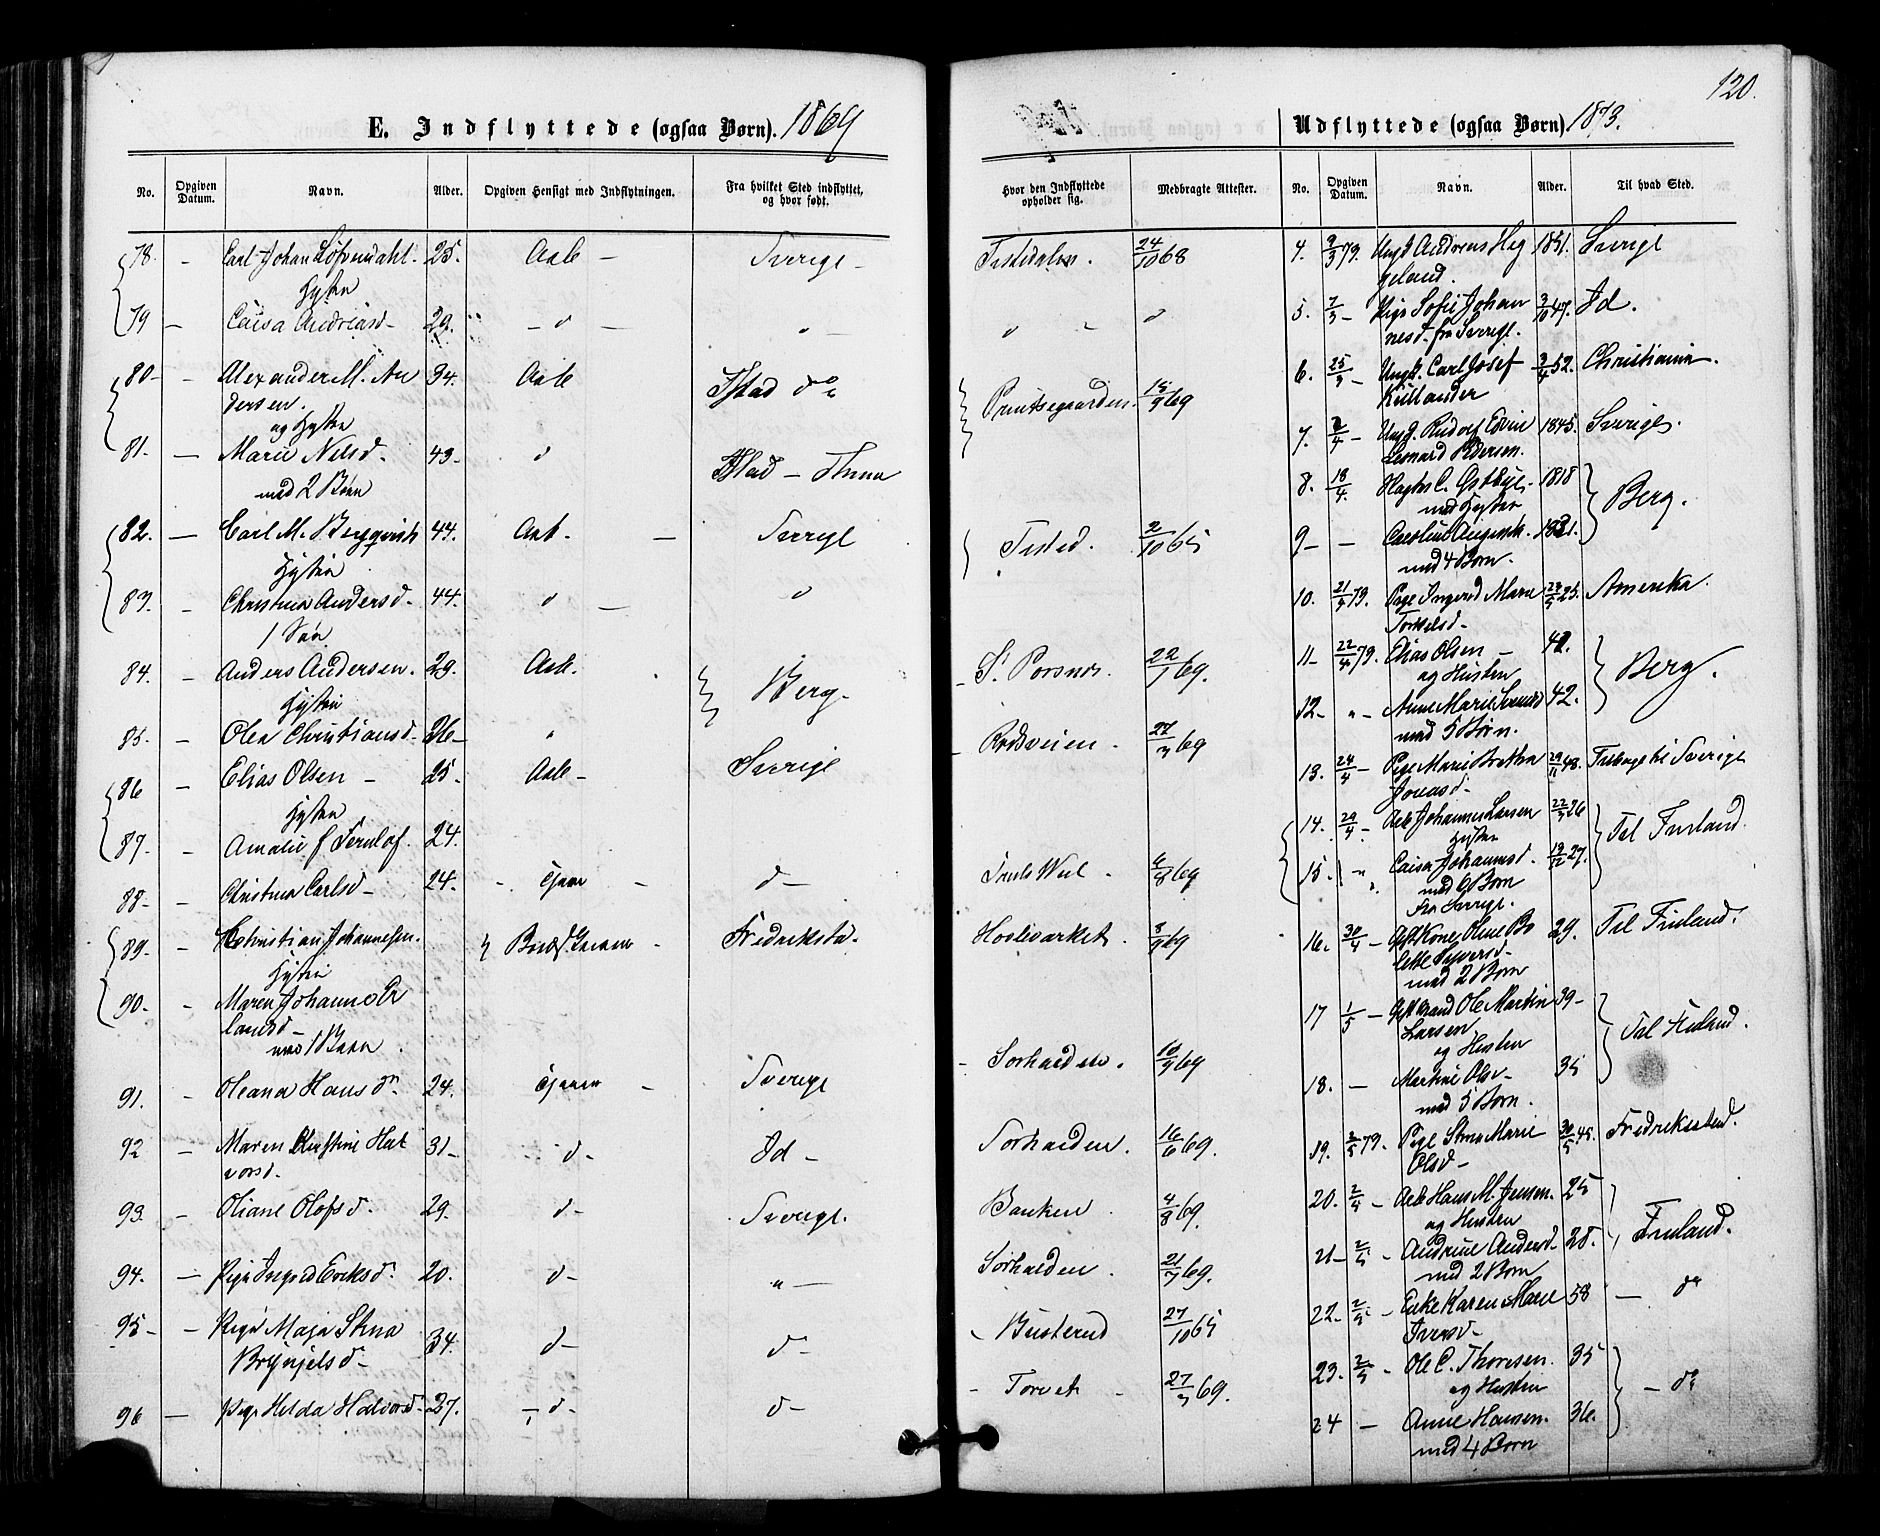 120.
E. Indflyttede (ogsaa Børn). 1869
Udflyttede (ogsaa Børn) 1873.
No. Opgiven Datum. Navn. Alder. Opgiven Hensigt med Indflytningen. Fra hvilket Sted indflyttet, og hvor født.
Hvor den Indflyttede opholder sig. Medbragte Attester. No. Opgiven Datum. Navn. Alder. Til hvad Sted.
78. - Carl Johan 25. Sverige - Tistedalen. 24/10 68
Hustru
79 - Caisa Andreasd - 29. - d - "
80 - Alexander M. An 34. 15/9 69
dersen.
og Hustru
81. - Marie Nilsd. 43 - d
med 2 Børn
82. - Carl M. Bergqvist 44. Sverige Tisted. 2/10 65
Hustru
83. - Christina Andersd. 44. d - d
1 Søn
84. - Anders Andersen. 29. Berg. 22/1 69.
Hustru
85. - Olea Christiansd. 26 - " 27/3 69
86 - Elias Olsen - 25. Sverige
Hustru
87. - Amalie 24.
88 - - Christina Carlsd - 24. d - 6/8 69
89. - Christian Johannesen. Fredrikstad.
Hustru
90. - Maren Johanne Er
landsd -
med 1 Barn
91. - Oleana Hansd. 24. Sverige Sørhalden. 10/9 69
92 - Maren Kirstine Hal 31 - d - Id - Sørhalden. 16/6 69.
vorsd.
93. - Oliane Olofsd. 29. d - Sverige. Banken 4/8 69.
94. - Pige Ingrid Eriksd. 20. d - " - Sørhalden. 21/7 69.
95 - - Pige Maja Stina 34. d - d - Busterud 27/10 65
Bryngelsd -
96 - Pige Helda Halvorsd. 27. d - d - Torvet - 27/3 69.
4. 9/3 73. Ungk Andreas Heg 1851. Sverige
geland.
5. 7/3 - Pige Sofie Johan 3/10 47. Id.
nesd. fra Sverige.
6. 25/3 - Ungk. Carl Josef 3/4 52. Christiania.
Kullander
7. 2/4 - Ungk. Rudolf Edvin 1845. Sverige.
Leonard Pedersen.
8. 18/4. 1818 Berg.
med Hustru
9 - - Caroline
med 4 Børn.
10. 21/4 73. Pige Ingerid Marie Amerika.
Torkelsd -
11 - 22/4 73. Elias Olsen - Berg.
og Hustru
12 - " - Anne Marie 42.
med 5 Børn.
13. 24/4 - Pige Marie 29/11 48. Tilbage til Sverige
Jonasd -
14. 29/4 - Johannes Larsen Til Finland.
Hustru
15. " Caisa Johannesd. 19/12 27.
med 6 Børn
Fra Sverige.
16. 30/4 - Gift Kone Oline Bo 29. Til Finland.
lette Syversd -
med 2 Børn
17 1/5 - Ole Martin 39 - Til Finland.
Larsen
og Hustru
18. - Martine Olsd - 35
med 5 Børn.
19. 2/5 73. Pige Stina Marie 30/5 45. Fredriksstad.
Olsd -
20. 2/4 - Hans M. Jensen. 25 Finland.
og Hustru
21 - 2/5 - Andrine Andersd - 28.
med 2 Børn
22. 2/5 - Enke Karen Marie 58 - do
Iversd -
23. 2/5 - Ole C. Thoresen. 35 - do
og Hustru
24 - Anne Hansen. 36.
med 4 Børn